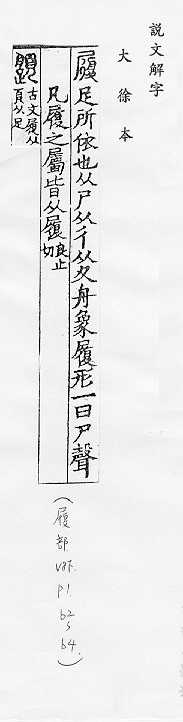 說文解字
大徐本
履足所依也从尸从彳从夊舟象履形一曰尸聲
凡履之屬皆从履良止
切
古文履从
頁从足
(履部 V8下. P1. b2~b4.)